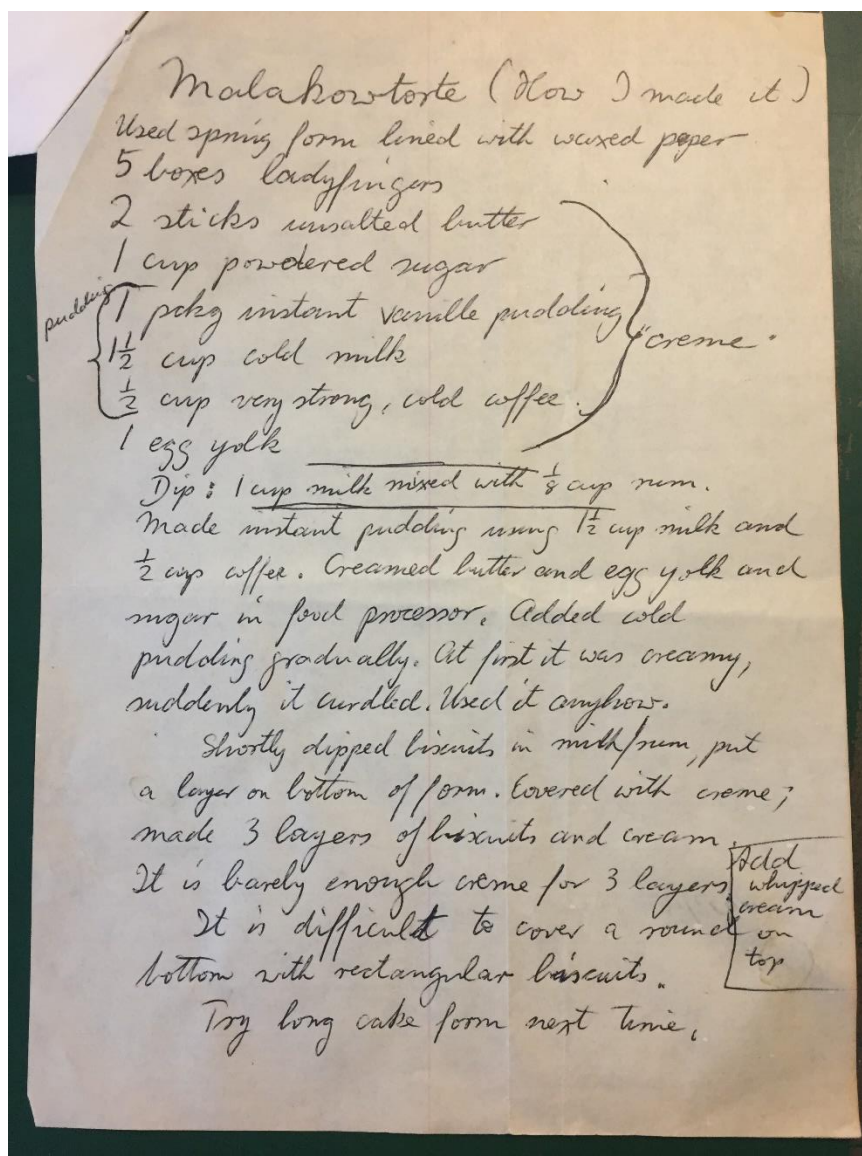 Malakowtorte (How I made it)
Used spring form lined with waxed paper
5 boxes ladyfingers
2 sticks unsalted butter
1 cup powdered sugar
pudding
1 pckg instant vanille pudding
1½ cup cold milk
"creme"
½ cup very strong, cold coffee.
1 egg yolk
Dip: 1 cup milk mixed with ⅛ cup rum.
Made instant pudding using 1½ cup milk and
½ cup coffee. Creamed butter and egg yolk and
sugar in food processor. Added cold
pudding gradually. At first it was creamy,
suddenly it curdled. Used it anyhow.
Shortly dipped biscuits in milk/rum, put
a layer on bottom of form. Covered with creme;
made 3 layers of biscuits and cream.
It is barely enough creme for 3 layers.
It is difficult to cover a round
bottom with rectangular biscuits.
Try long cake form next time.
Add
whipped
cream
on
top